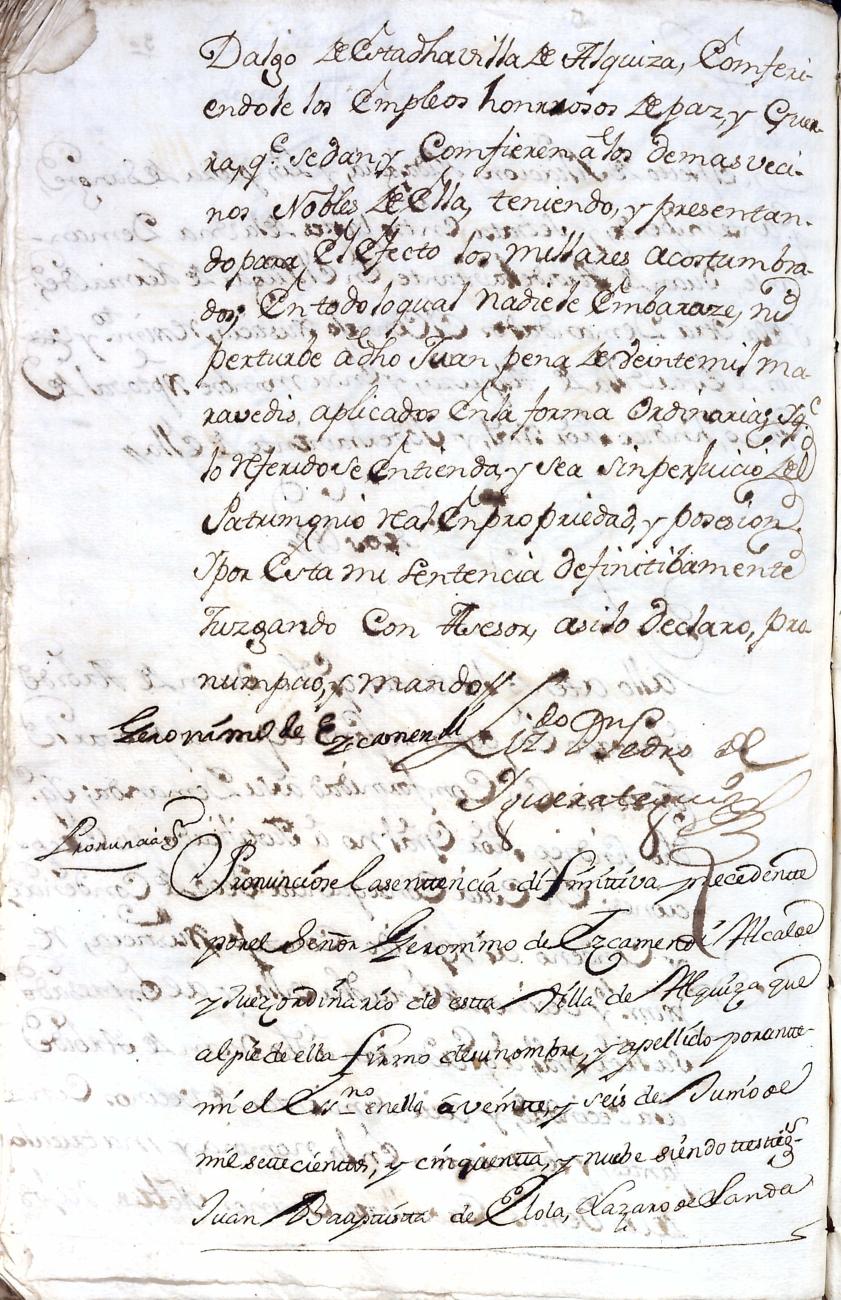 Dalgo de Estadha villa de Alquiza, Comferi-
endole los Empleos honrrosos de paz, y Guer-
ra, q.e se dan, y Comfieren â los demas veci-
nos Nobles de Ella, teniendo, y presentan-
do para El Efecto los millares acostumbra-
dos; En todo loqual nadie le Embaraze, ni
perturbe â dho Juan pena de veinte mil ma-
ravedis aplicados En la forma Ordinaria; y q.e
lo referido se Entienda, y sea sin perjuicio del
Patrimonio real, En propriedad, y posesion
Ypor Esta mi Sentencia definitibamente
Juzgando Con Asesor, asi lo Declaro, pro-
numpcio, y mando//
Geronimo de Ezcamendi Liz.do D.n Pedro de
Pronuncia.on
Pronunciose la senttencia difinitiva precedentte
por el Señor Geronimo de Ezcamendi Alcalde
y Juez ordinario de estta Villa de Alquiza que
al pie de ella firmo de su nombre, y apellido por antte
mi el Ess.no en ella â veintte, y seis de Junio de
mil settecientos, y cinquentta, y nuebe siendo testtigs
Juan Baapttistta de Elola, Lazaro de Landa